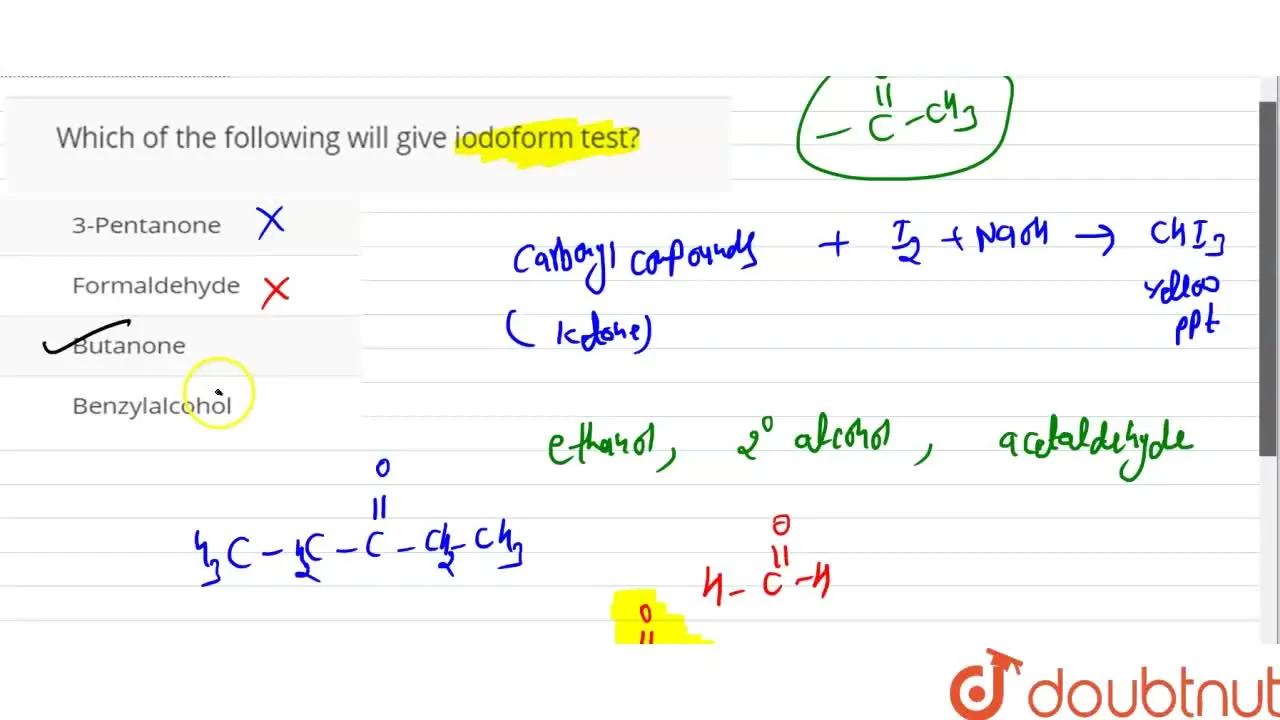 O
||
— C — CH3
Which of the following will give iodoform test?
3-Pentanone X
Formaldehyde X
Butanone
Benzylalcohol
Carbonyl compounds + I2 + NaOH → CHI3
(ketone)
yellow
ppt
ethanol, 2° alcohol, acetaldehyde
O
||
H3C — H2C — C — CH2 — CH3
O
||
H — C — H
O
||
doubtnut